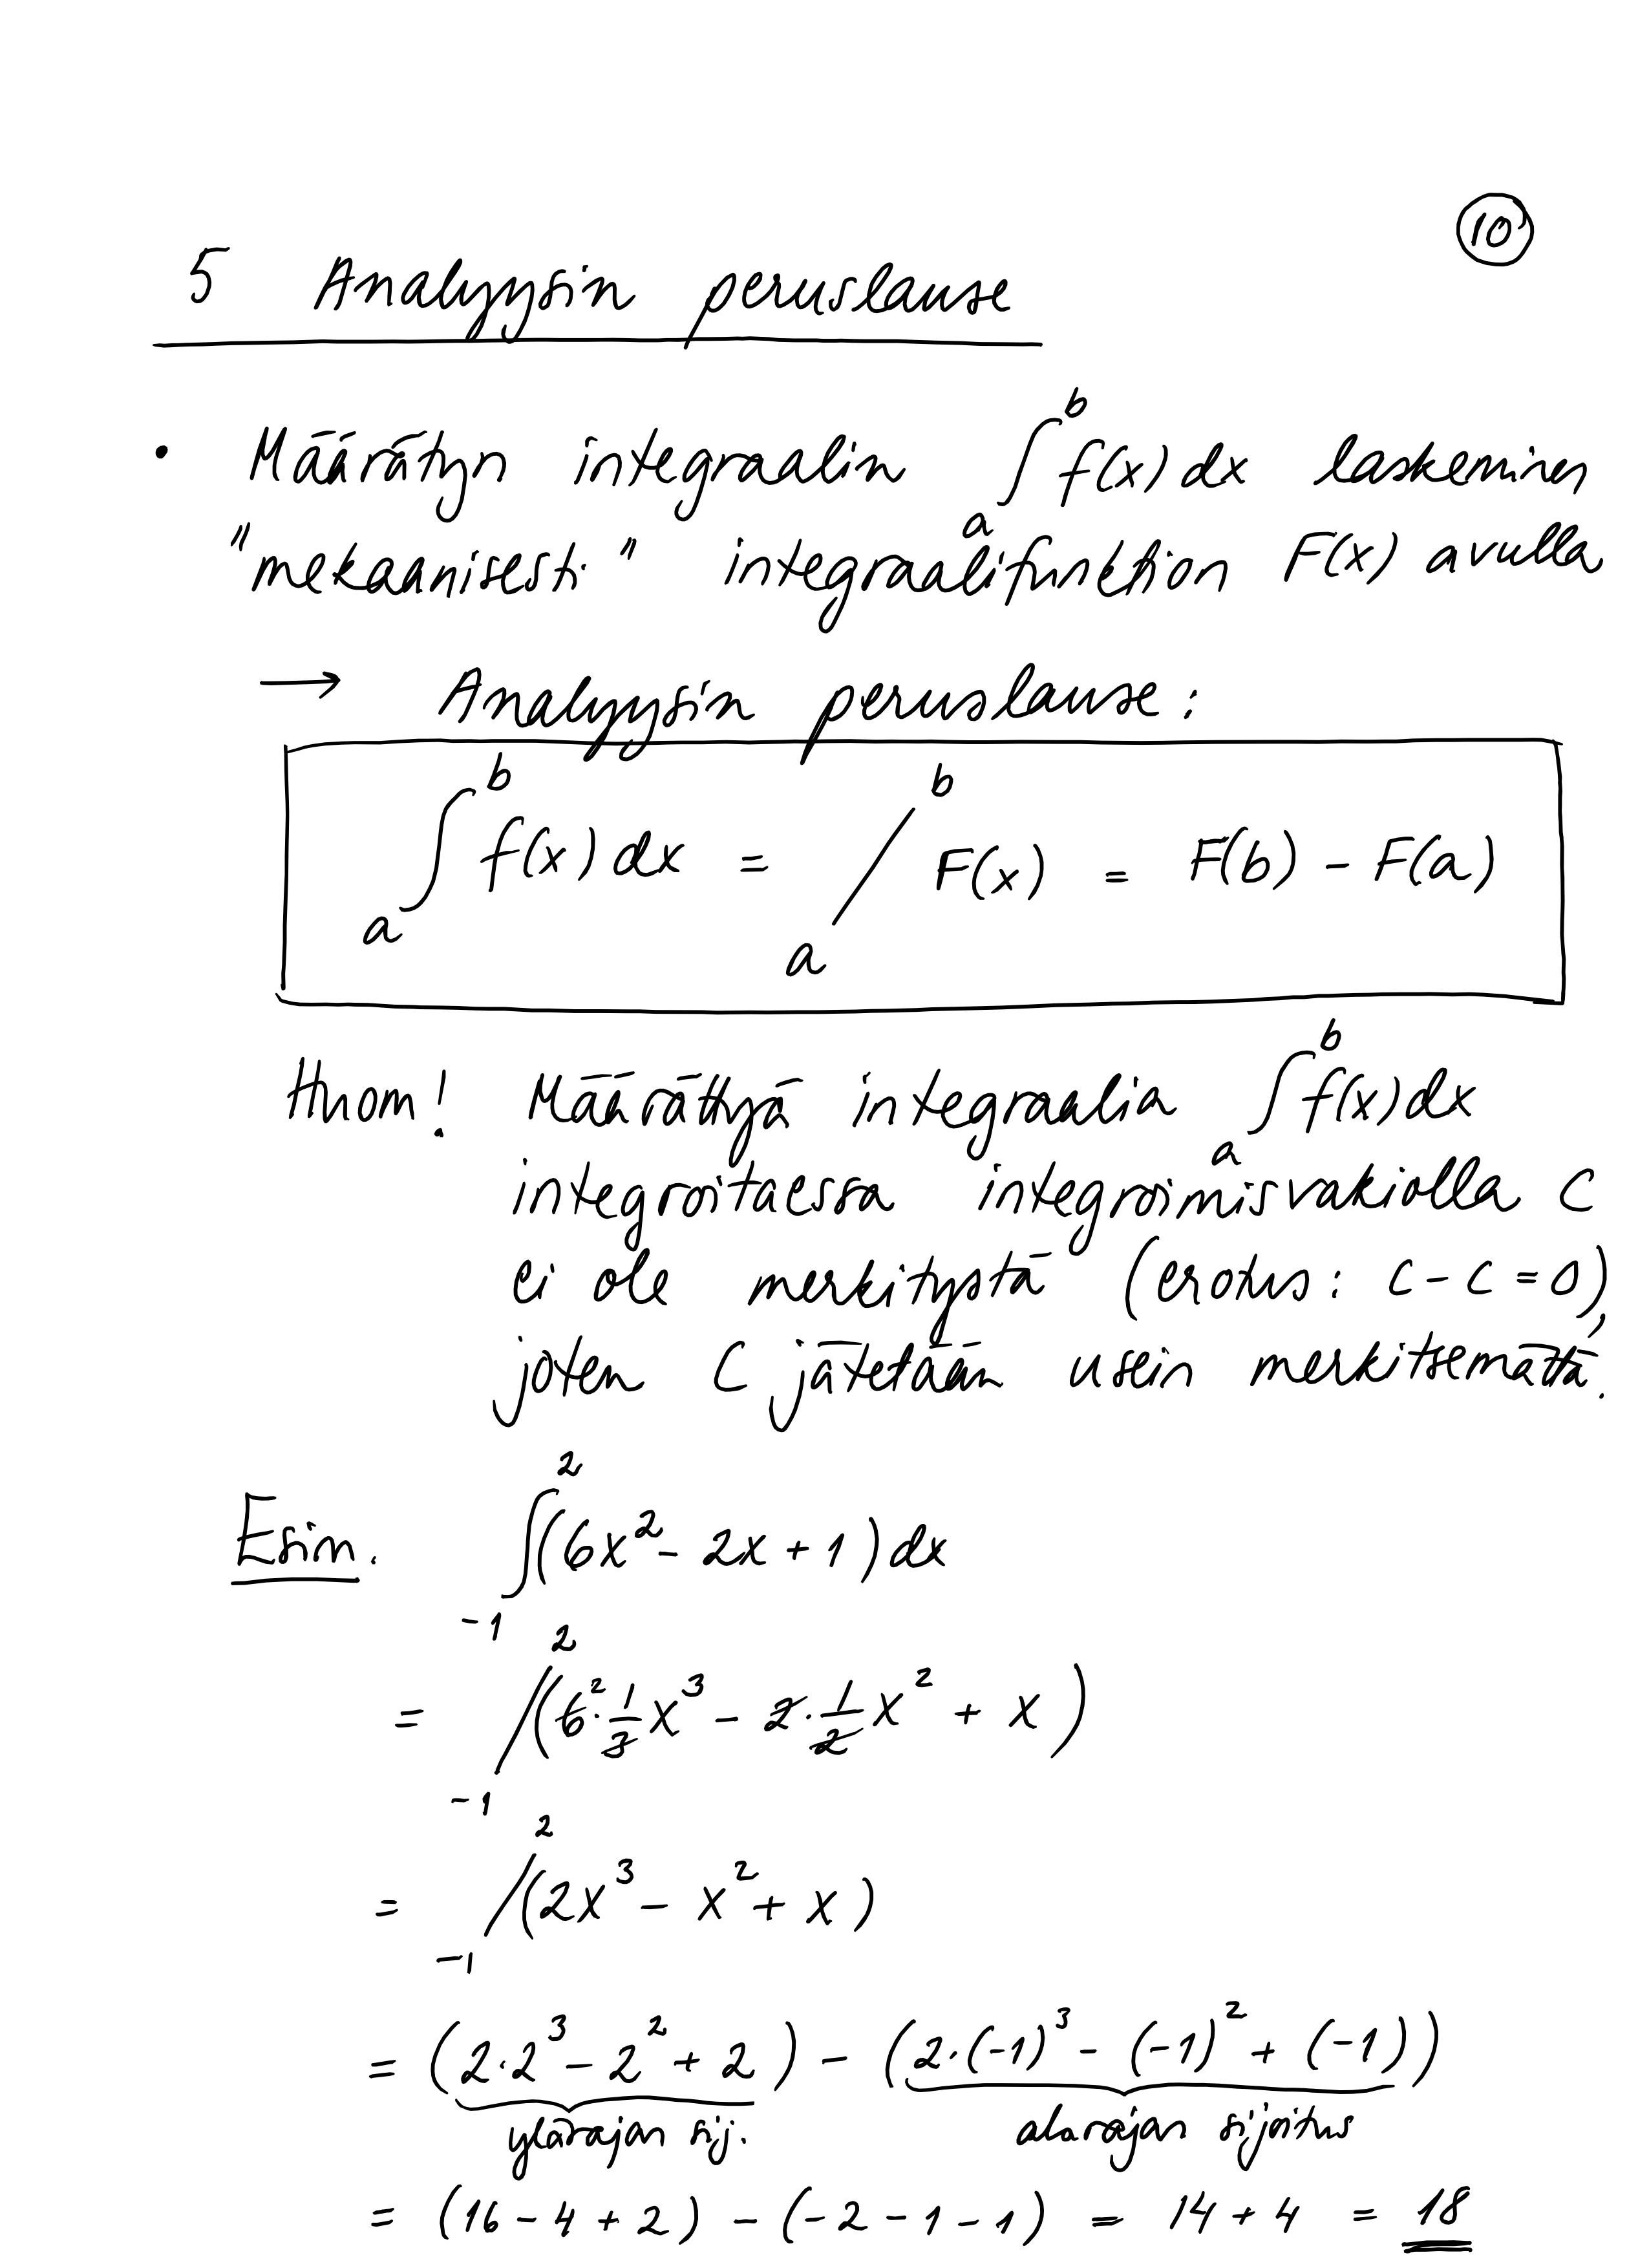 10
5 Analyysin peruslause
• Määrätyn integraalin ∫_a^b f(x) dx laskeminen
"mekaanisesti" integraalifunktion F(x) avulla
→ Analyysin peruslause:
∫_a^b f(x) dx = /_a^b F(x) = F(b) - F(a)
Huom! Määrättyä integraalia ∫_a^b f(x) dx
integroitaessa integroimisvakiolla C
ei ole merkitystä (erotus: C - C = 0),
joten C jätetään usein merkitsemättä.
Esim. ∫_{-1}^2 (6x² - 2x + 1) dx
= /_{-1}^2 (6̸² · 1/3̸ x³ - 2̸ · 1/2̸ x² + x)
= /_{-1}^2 (2x³ - x² + x)
= (2·2³ - 2² + 2) - (2·(-1)³ - (-1)² + (-1))
ylärajan sij. alarajan sijoitus
= (16 - 4 + 2) - (-2 - 1 - 1) = 14 + 4 = 18